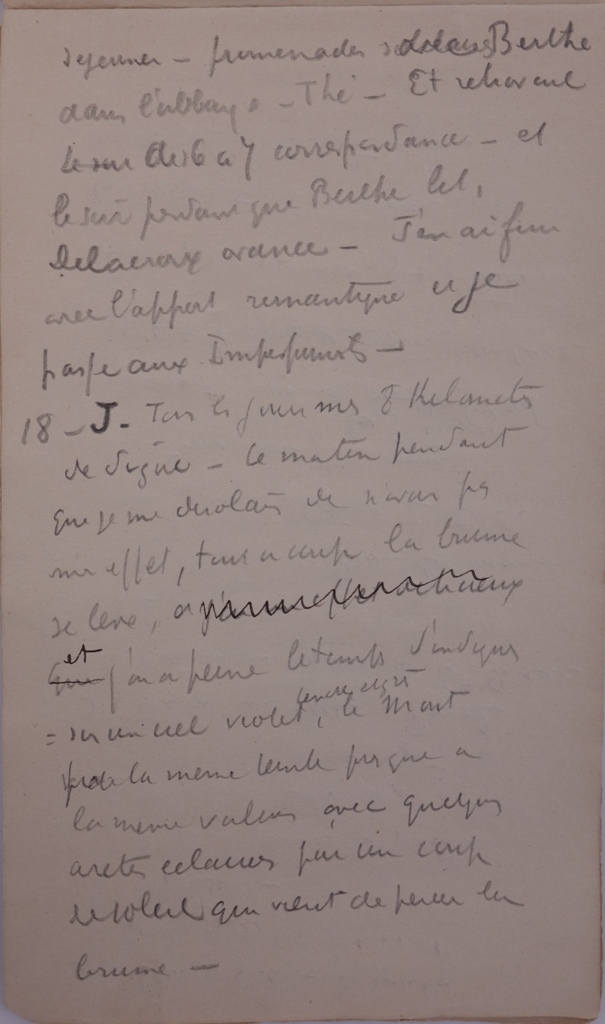 dejeuner – promenades Berthe
dans l'abbaye – Thé – Et
de 6 a 7 correspondance – et
le soir pendant que Berthe lit,
Delacroix avance – J'en ai fini
avec l'apport romantique et je
passe aux Impressionnists –
18 – J. Tous les jours mes 8 Kilometres
de digue – Ce matin pendant
que je me desolais de n'avoir pas
mon effet, tout a coup la brume
se leve,
et j'ai a peine le temps d'indiquer
= sur un ciel violet, cendre et gris le Mont
de la meme teinte presque a
la meme valeur avec quelques
aretes eclairees par un coup
de soleil qui vient de percer la
brume –